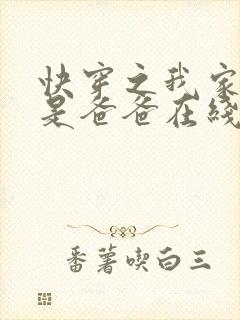 快穿之我家
是爸爸在线
番薯喫白三